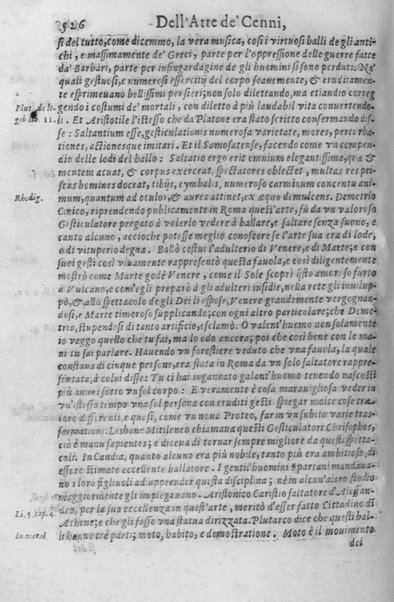 526 Dell'Arte de' Cenni,
si del tutto, come dicemmo, la vera musica, così i virtuosi balli de gli anti-
chi, e massimamente de' Greci, parte per l'oppressione delle guerre fatte
da' Barbari, parte per infingardagine de gli huomini si sono perduti. Ne'
quali gestuosi, e numerosi essercitij del corpo soauemente, & eruditamen-
te esprimeuano bellissimi pensieri; non solo dilettando, ma etiandio correg
Plut. de le-
gendo i costumi de' mortali, con diletto à più laudabil vita conuertendo-
gib lib. 11.
li. Et Aristotile l'istesso che da Platone era stato scritto confermando dis-
se: Saltantium esse, gesticulationis numerosa varietate, mores, perturba-
tiones, actionesque imitari. E il Samosatense, facendo come vn compen-
dio delle lodi del ballo: Saltatio ergo erit omnium elegantissima, quæ &
mentem acuat, & corpus exerceat, spectatores oblectet, multas res pri-
Rhodig.
scas homines doceat, tibijs, cymbalis, numeroso carminum concentu ani-
mum, quantum ad oculos, & aures attinet, ex æquo demulcens. Demetrio
Cinico, riprendendo publicamente in Roma quest'arte, fù da vn valoroso
Gesticulatore pregato à volerlo vedere à ballare, e saltare senza suono, e
canto alcuno, accioche potesse meglio conoscere se l'arte sua era di lode,
ò di vituperio degna. Ballò costui l'adulterio di Venere, e di Marte, e con
suoi gesti così viuamente rappresentò questa fauola, e così diligentemente
mostrò come Marte godè Venere, come il Sole scoprì q̃sto amor so furto
a Vulcano, e com'egli preparò à gli adulteri insidie, nella rete gli inuilup-
pò, & allo spettacolo de gli Dei li espose, Venere grandemente vergognan-
dosi, e Marte timoroso supplicando; con ogni altro particolare; che Deme-
trio, stupendosi di tanto artificio, esclamò. O valent'huomo non solamente
io veggo quello che tu fai, ma lo odo ancora; poi che così bene con le ma-
ni tu sai parlare. Hauendo vn forestiere veduto che vna fauola, la quale
constaua di cinque persone, era stata in Roma da vn solo saltatore rappre-
sentata, à colui disse: Tu ci hai ingannato galant'huomo tenendo nascosti
più animi sotto vn sol corpo: E veramente è cosa marauigliosa veder in
vn'istesso tempo vna sol persona con eruditi gesti spiegar molte cose tra
loro differenti, e quasi, come vn nouo Proteo, far in vn subito varie tras-
formationi. Lesbono Mitileneo chiamaua questi Gesticulatori Chrisophos,
ciò è manu sapientes; e diceua di tornar sempre migliore da questi spetta-
coli. In Candia, quanto alcuno era più nobile, tanto più era ambitioso, di
essere stimato eccellente ballatore. I gentil'huomini Spartani mandaua-
no i loro figliuoli ad apprendere questa disciplina; nè in alcun'altro studio
maggiormente gli impiegauano. Aristonico Caristio saltatore d'Alessan-
Li. 5. cap. 4.
dro, per la sua eccellenza in quest'arte, meritò d'esser fatto Cittadino di
Athene; & che gli fosse vna statua dirizzata. Plutarco dice che questi bal-
In moral
li hanno tre parti; moto, habito, e demostratione. Moto è il mouimento
del